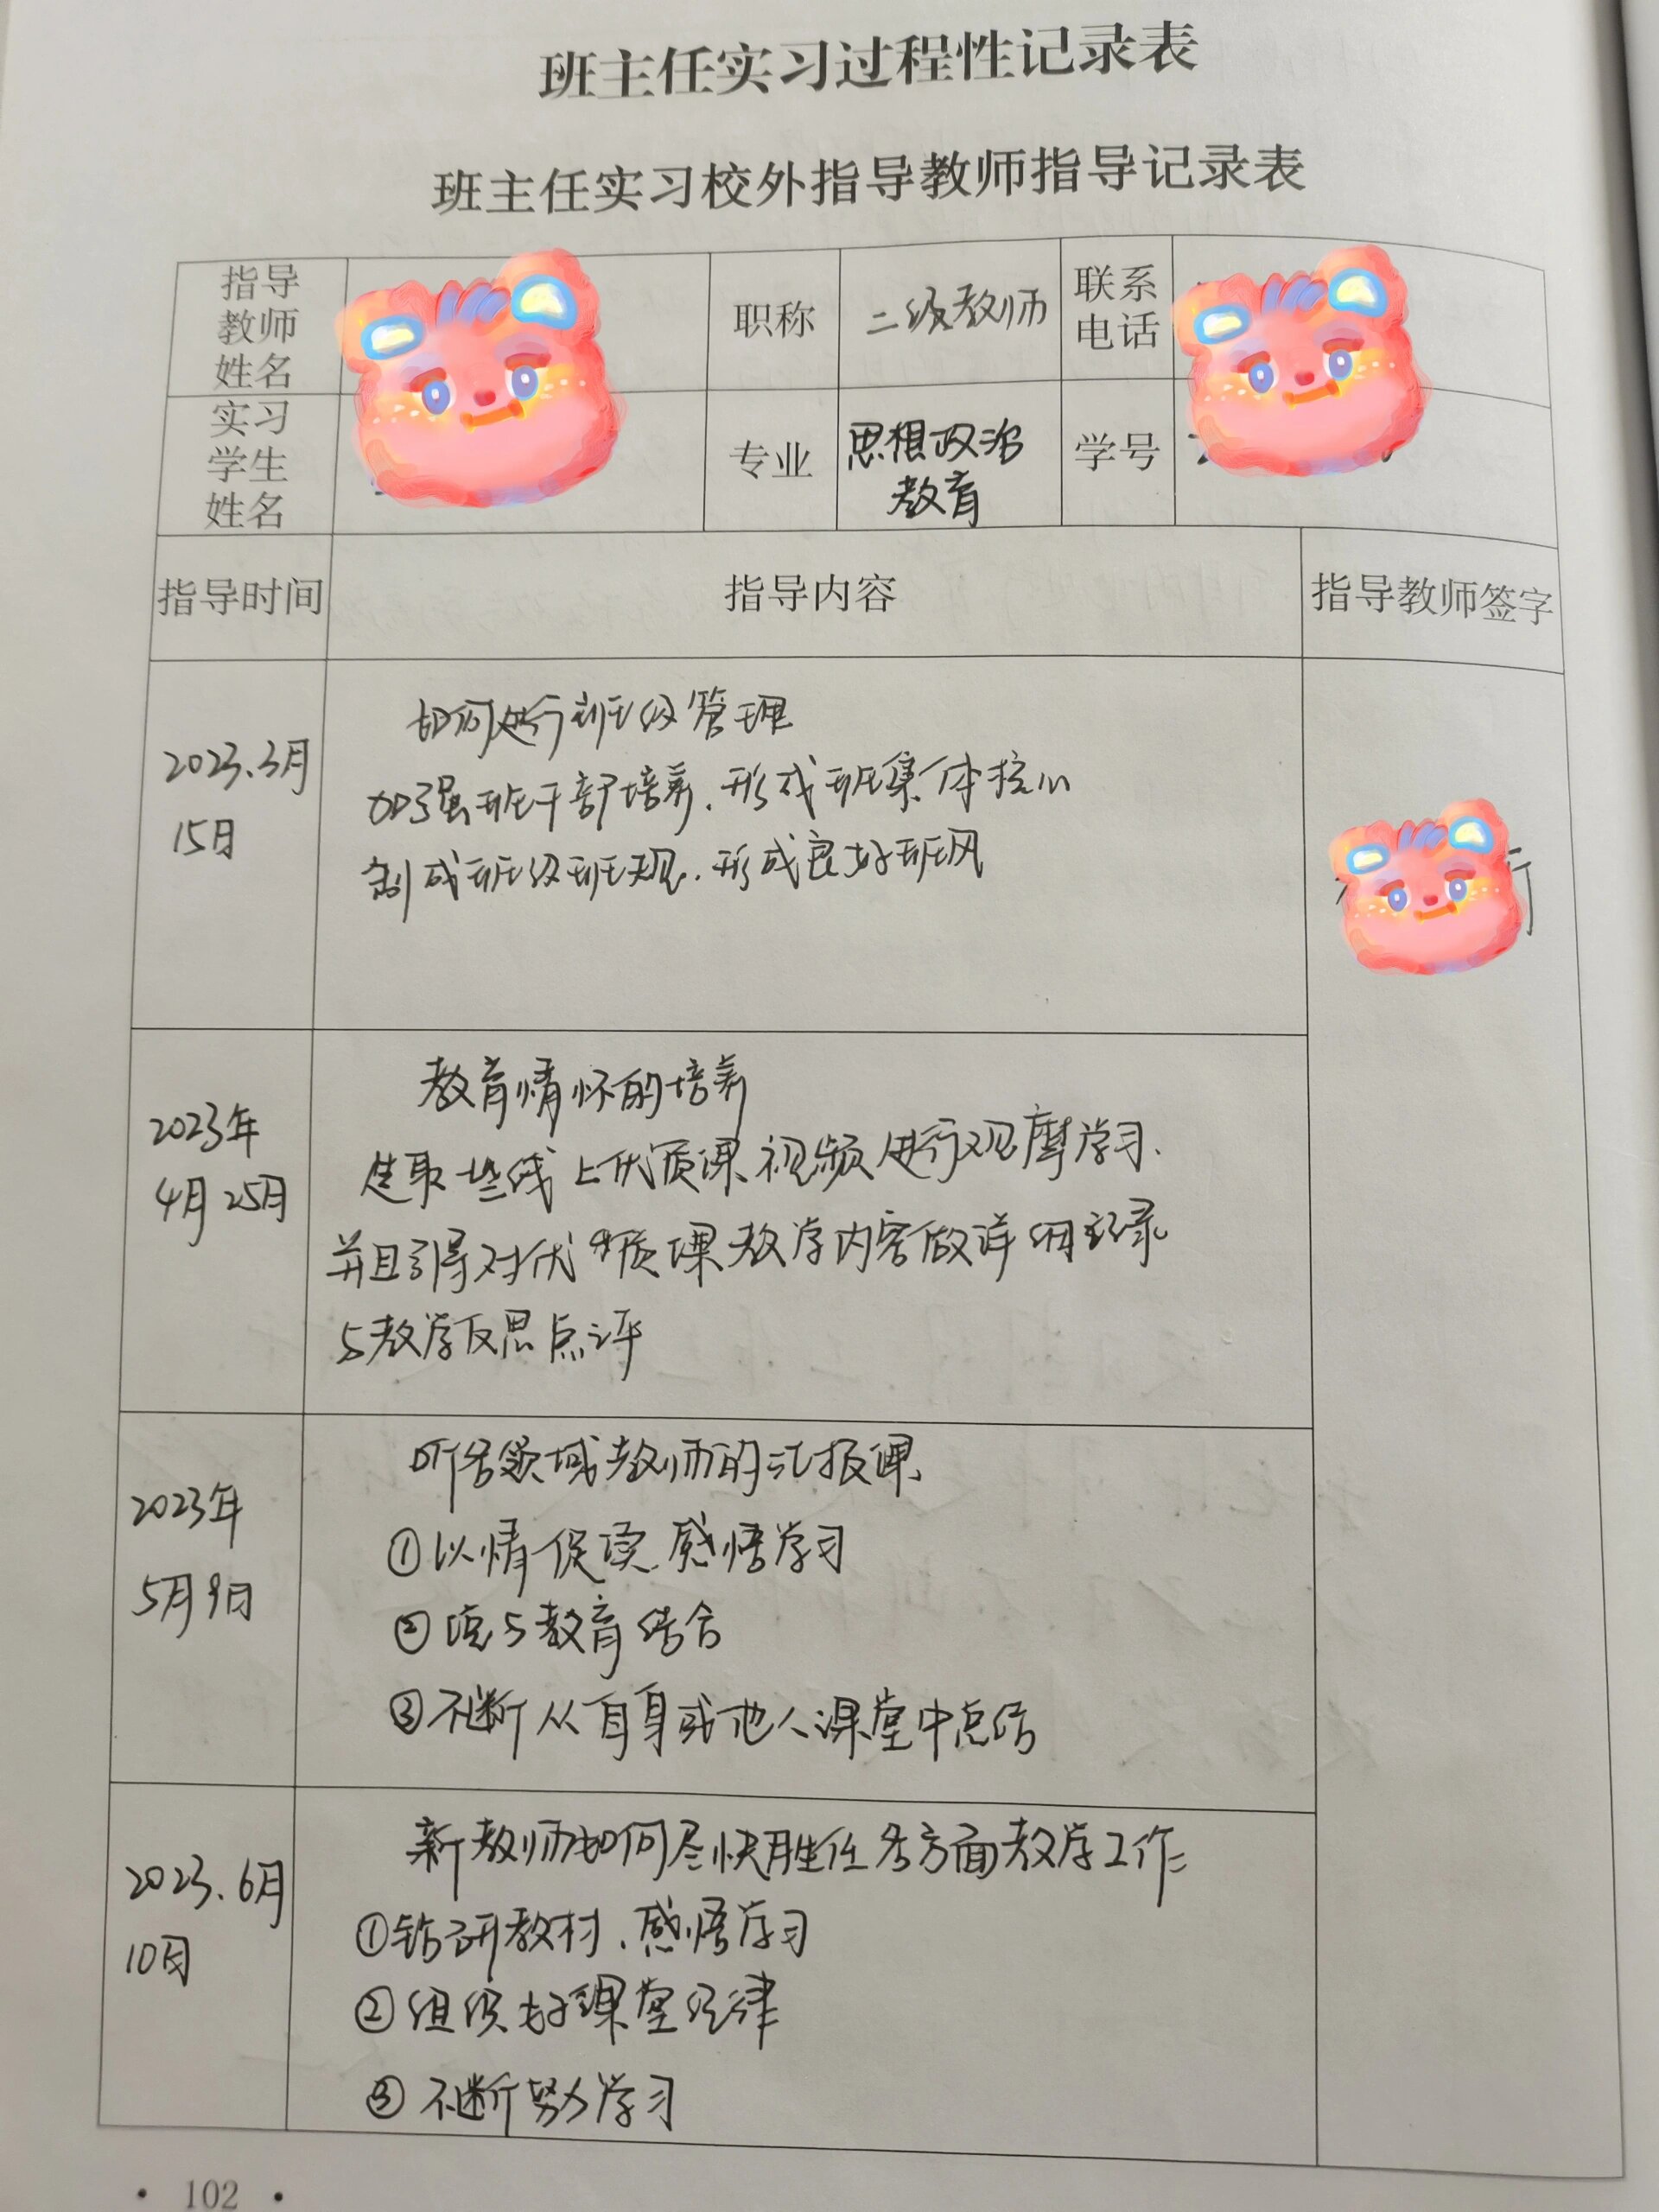 班主任实习过程性记录表
班主任实习校外指导教师指导记录表
指导
教师
姓名
职称
二级教师
联系
电话
实习
学生
姓名
专业
思想政治
教育
学号
指导时间
指导内容
指导教师签字
2023.3月
15日
如何进行班级管理
加强班干部培养.形成班集体核心
制成班级班规.形成良好班风
2023年
4月25日
教育情怀的培养
选取一些线上优质课视频进行观摩学习.
并且引导对优质课教学内容做详细记录
与教学反思点评
2023年
5月9日
听各领域教师的汇报课
①以情促读.感悟学习
② 与教育结合
③不断从自身或他人课堂中总结
2023.6月
10日
新教师如何尽快胜任各方面教学工作
①钻研教材.感悟学习
②组织好课堂纪律
③不断努力学习
· 102 ·